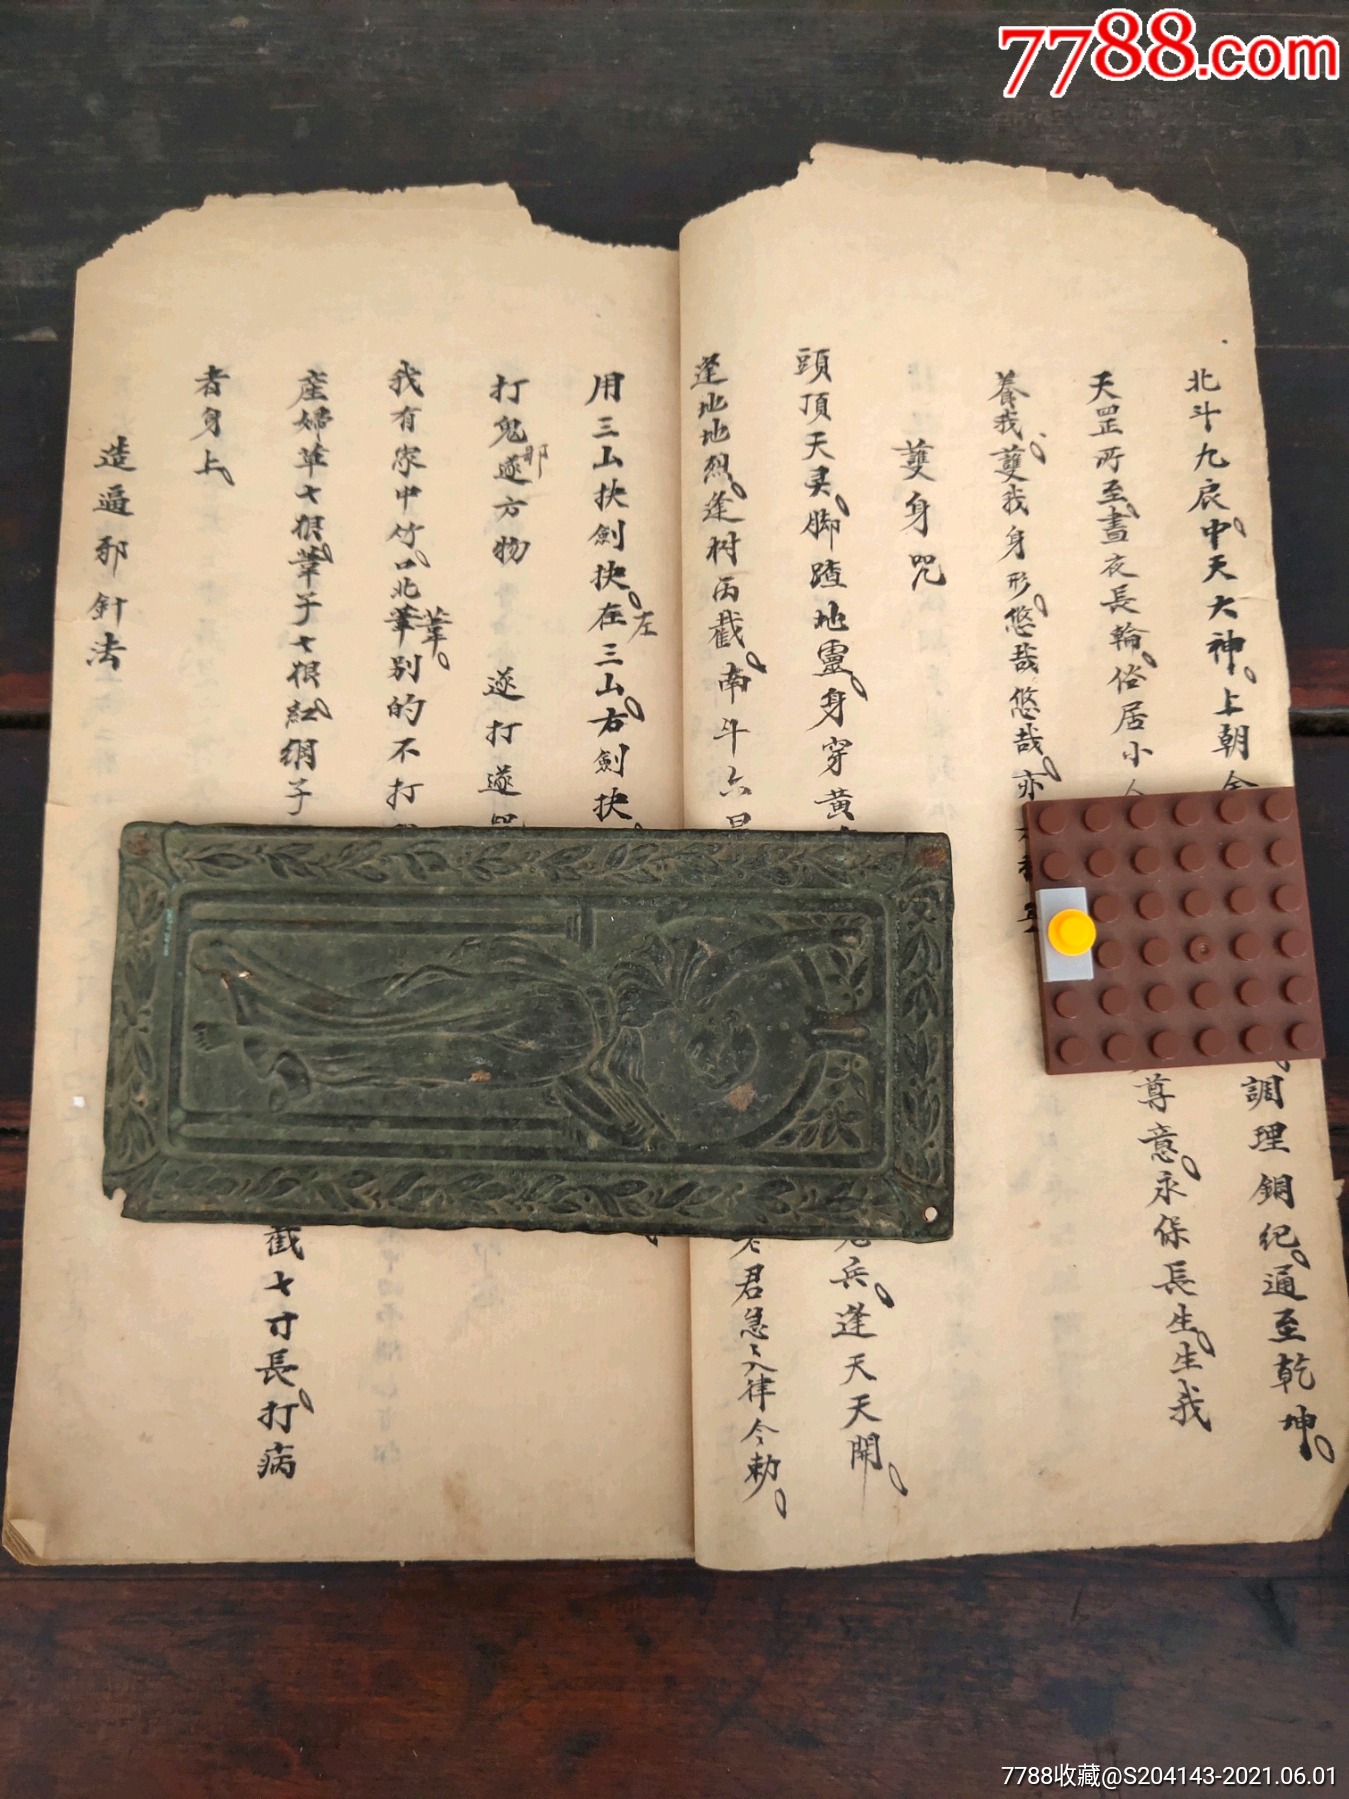 7788.com
北斗九辰。中天大神。上朝金
調理銅紀。通至乾坤。
天罡所至。晝夜長輪。俗居小人
尊意。永保長生。生我
養我。護我身形。悠哉悠哉。亦
護身咒
頭頂天灵。脚踏地靈。身穿黃
兵。逢天天開。
逢地地烈。逢树而截。南斗六
老君急急律令勅。
用三山抉劍抉。在三山。右劍抉
左
打鬼遂方物 遂打遂
邪
我有家中竹。口北葦別的不打
葦。
產婦草七根。葦子七根。紅綢子
截七寸長。打病
者身上。
造逼邪針法
7788收藏@S204143-2021.06.01